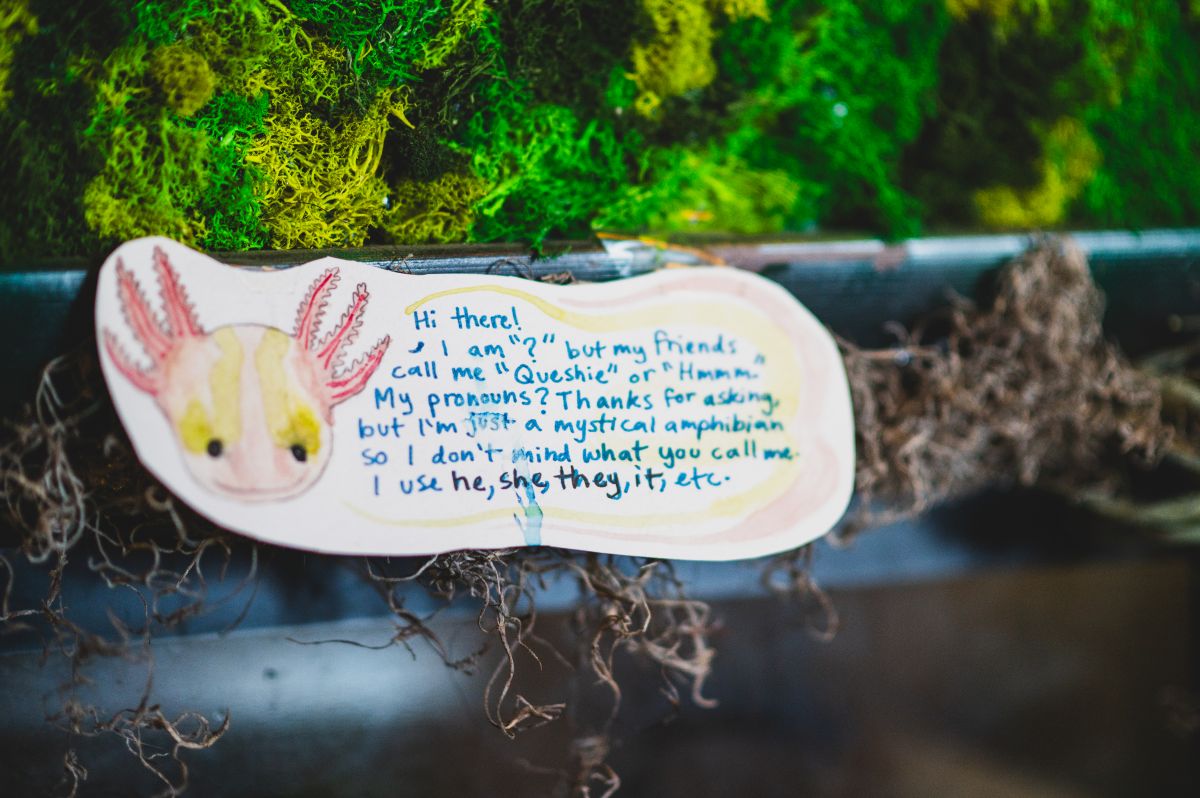 Hi there!
I am "?" but my friends
call me "Queshie" or "Hmmm."
My pronouns? Thanks for asking,
but I'm just a mystical amphibian
so I don't mind what you call me.
I use he, she, they, it, etc.